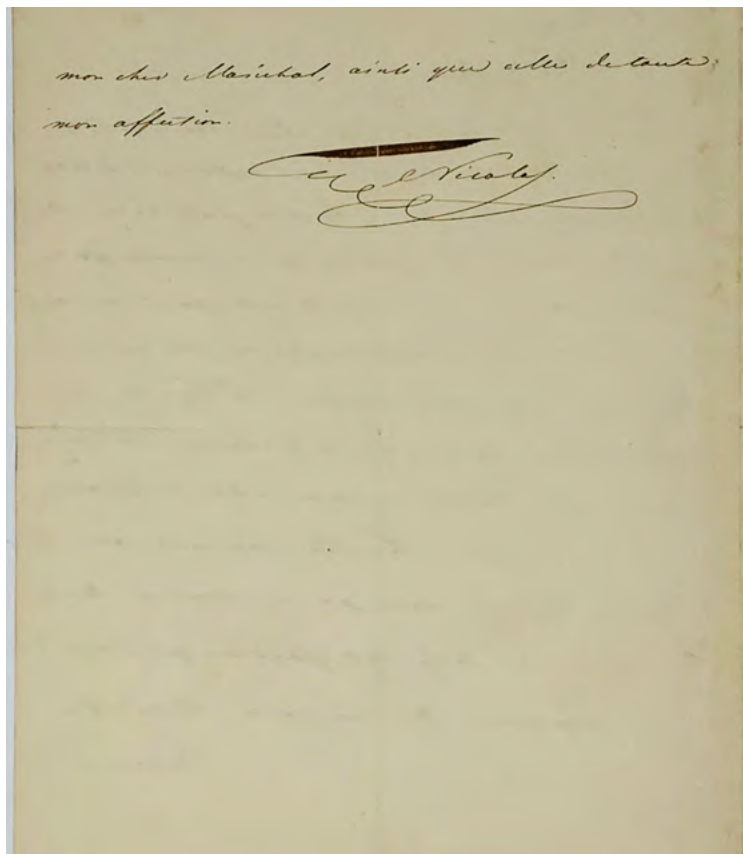 mon cher Maréchal, ainsi que celles de toute
mon affection.
Nicolas.